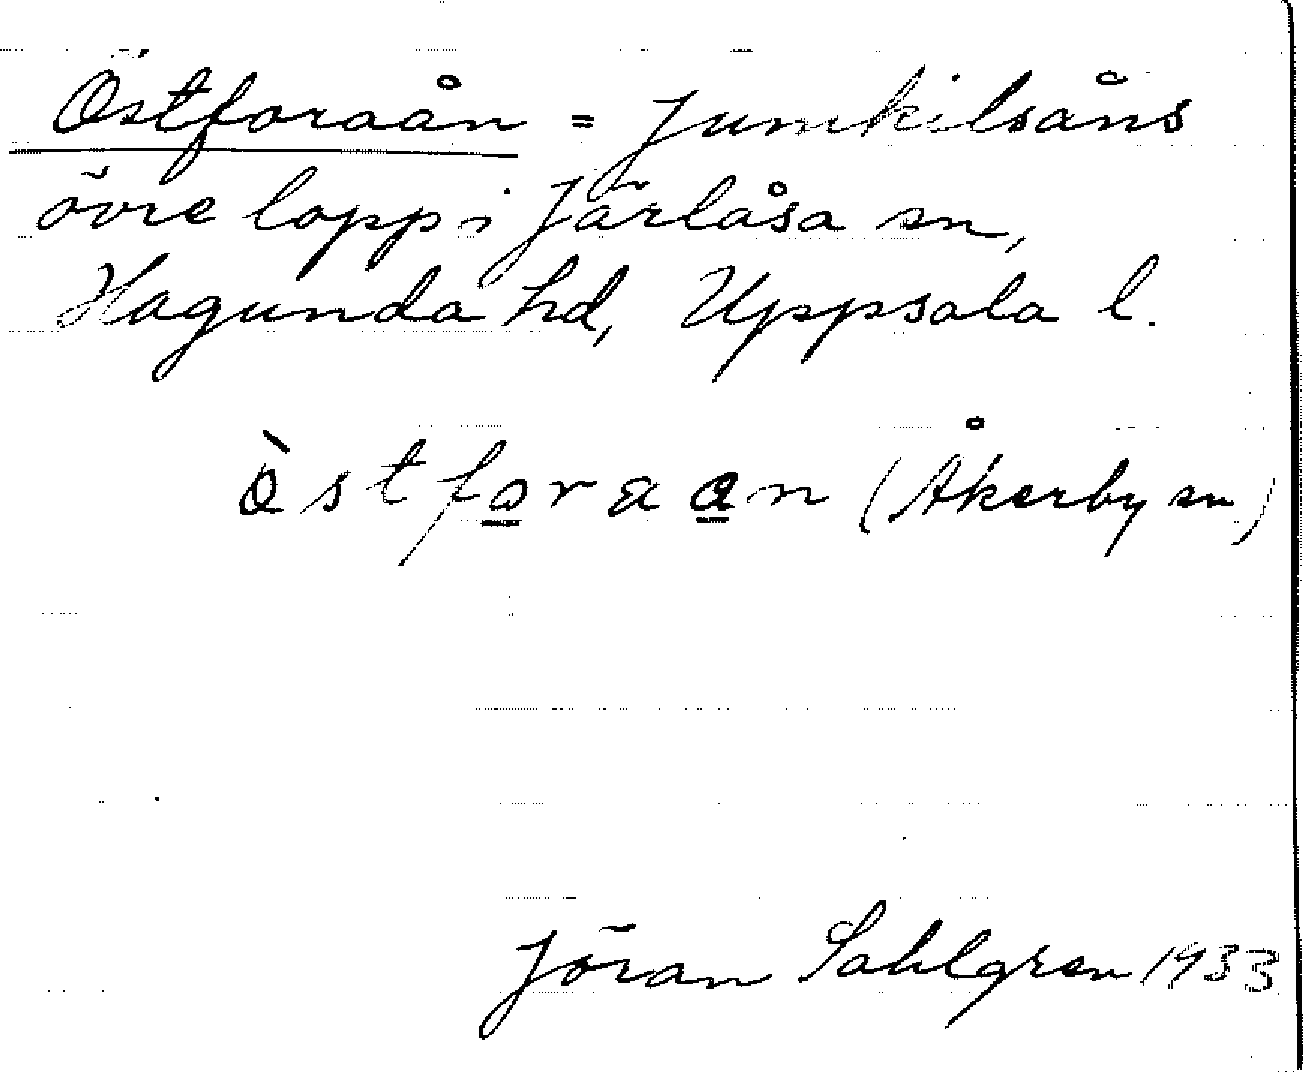 Östforaån = Jumkilsåns
övre lopp i Järlåsa sn,
Hagunda hd, Uppsala l.
òstforaan (Åkerby sn)
Jöran Sahlgren 1933